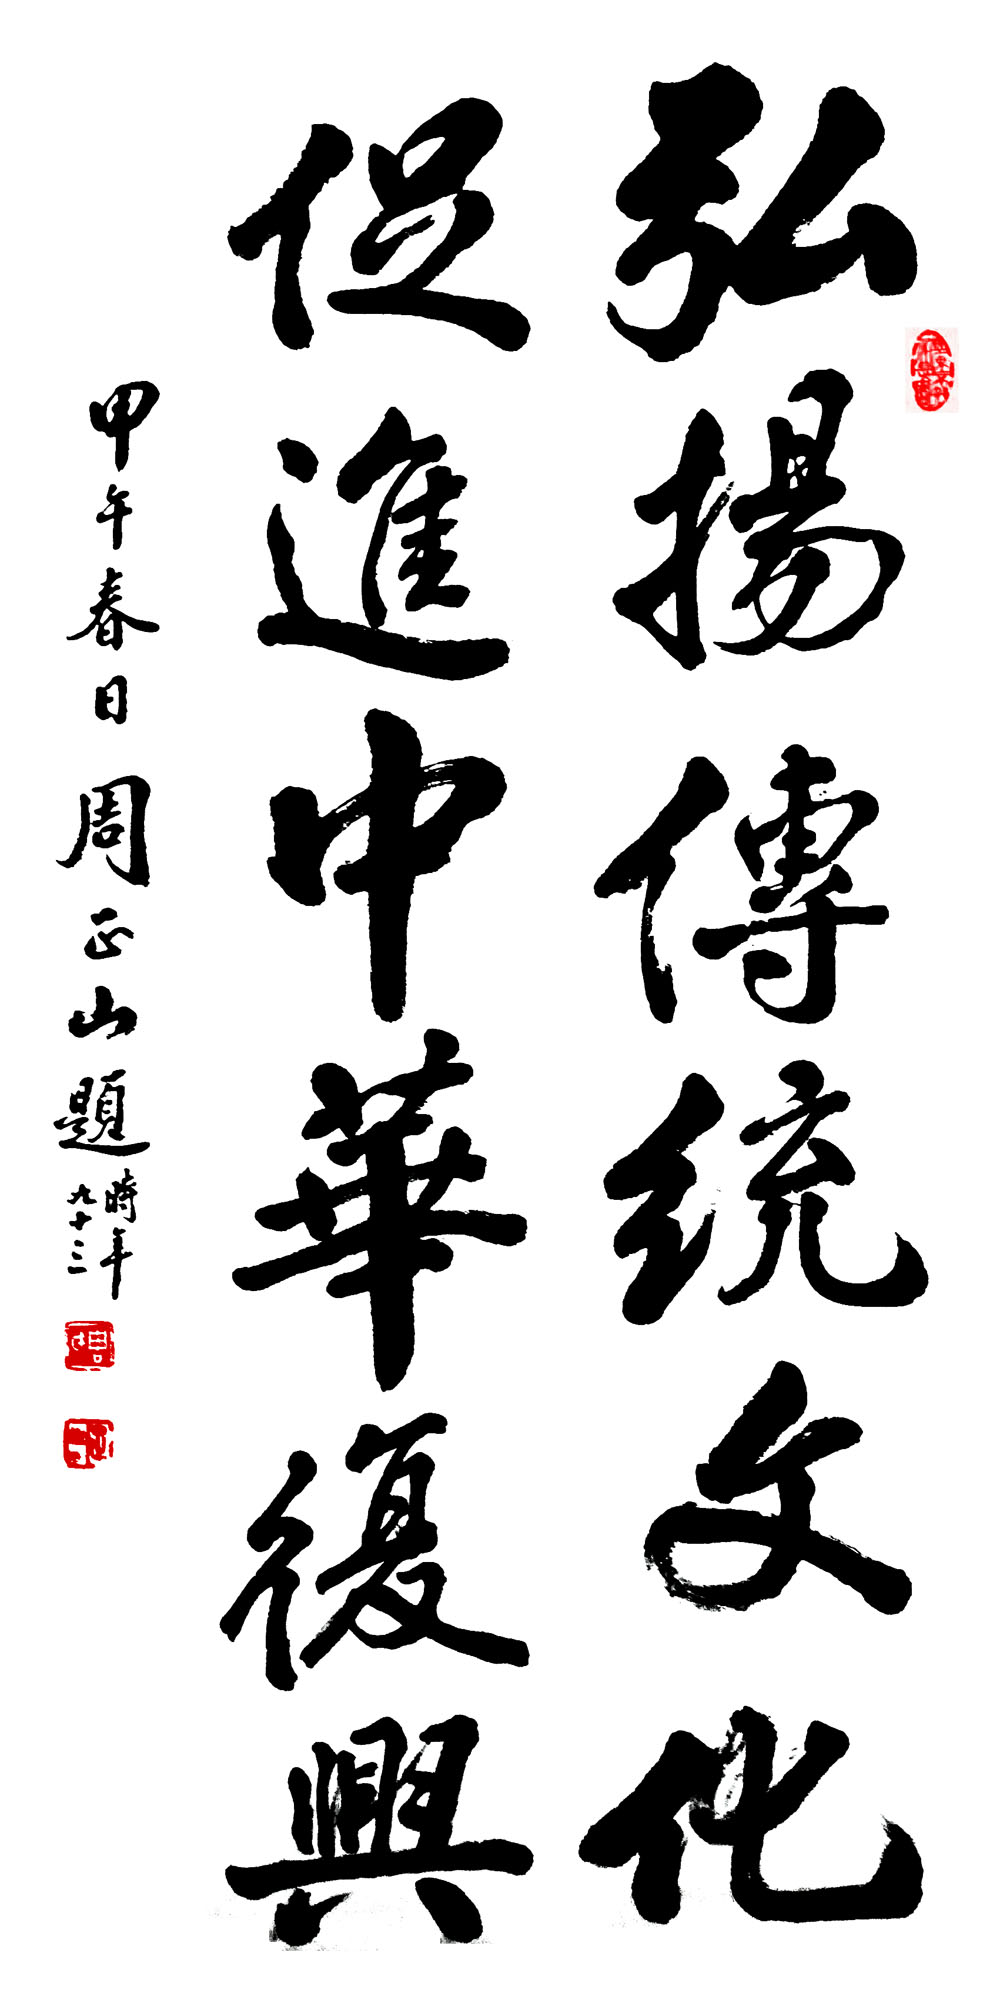 弘揚傳統文化
促進中華復興
甲午春日周正山題
時年
九十三